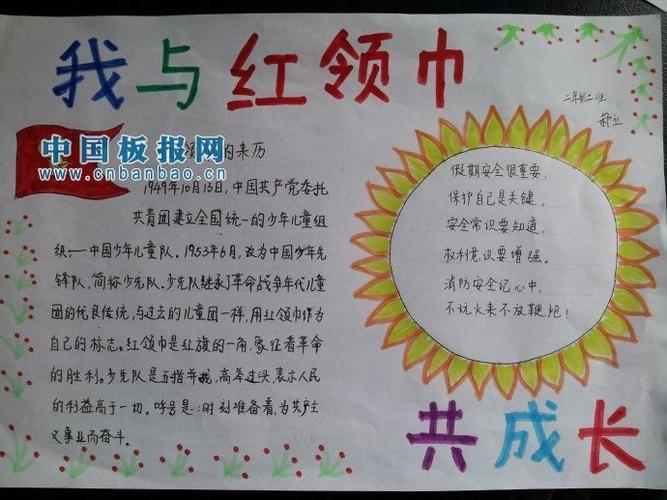 我与红领巾
二年级二班
中国板报网
www.cnbanbao.cn
的来历
1949年10月13日,中国共产党委托
共青团建立全国统一的少年儿童组
组——中国少年儿童队。1953年6月,改为中国少年先
锋队,简称少先队。少先队继承了革命战争年代儿童
团的优良传统,与过去的儿童团一样,用红领巾作为
自己的标志。红领巾是红旗的一角,象征着革命
的胜利。少先队是五指并拢,高举过头,表示人民
的利益高于一切。呼号是:时刻准备着,为共产主
义事业而奋斗。
假期安全很重要,
保护自己是关键。
安全常识要知道,
权利意识要增强。
消防安全记心中,
不玩火来不放鞭炮!
共成长